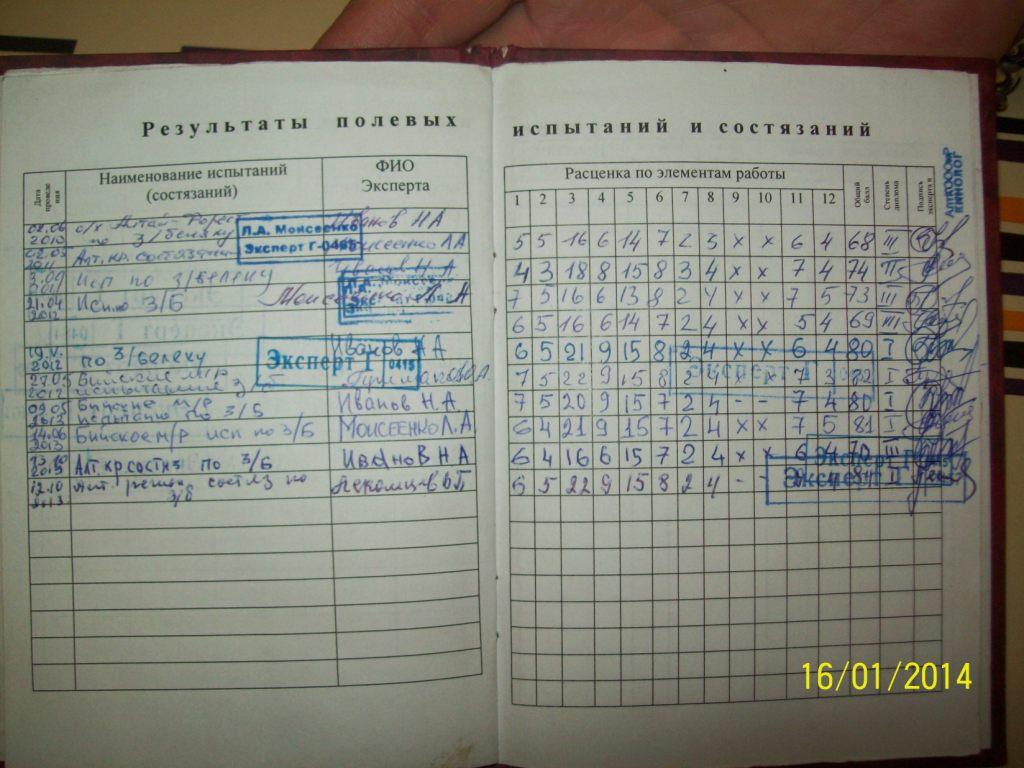 Результаты полевых испытаний и состязаний
Дата проведения
Наименование испытаний
(состязаний)
ФИО
Эксперта
Расценка по элементам работы
Общий балл
Степень диплома
Подпись эксперта и
КИНОЛОГ
1 2 3 4 5 6 7 8 9 10 11 12
02.06
2010
по з/беляку
Иванов НА
5 5 16 6 14 7 2 3 x x 6 4 68 III
Л.А. Моисеенко
Эксперт Г-0485
Алт.кр. состязания
Моисеенко ЛА
4 3 18 8 15 8 3 4 x x 7 4 74
Исп по з/беляку
Иванов Н.А.
7 5 16 6 13 8 2 4 x x 7 5 73 III
21.04
2012
Исп.по З/Б
Моисеенко Л А
6 5 16 6 14 7 2 4 x x 5 4 69 III
2012
по З/беляку
Иванов НА
6 5 21 9 15 8 2 4 x x 6 4 80 I
Эксперт I 0415
Бийские м/р
испытания
7 5 22 9 15 8 2 4 x x 7 3 82 I
Бийские м/р
испытания по З/Б
Иванов Н.А.
7 5 20 9 15 7 2 4 - - 7 4 80 I
14.06
2013
Бийское м/р исп по З/Б
Моисеенко Л.А
6 4 21 9 15 7 2 4 x x 7 5 81 I
13.10
2013
Алт кр состяз по З/Б
Иванов Н А
6 4 16 6 15 7 2 4 x x 6 4 70 III
12.10
2013
Алт. регион. состяз по
З/Б
6 5 22 9 15 8 2 4 - -
Эксперт I
16/01/2014